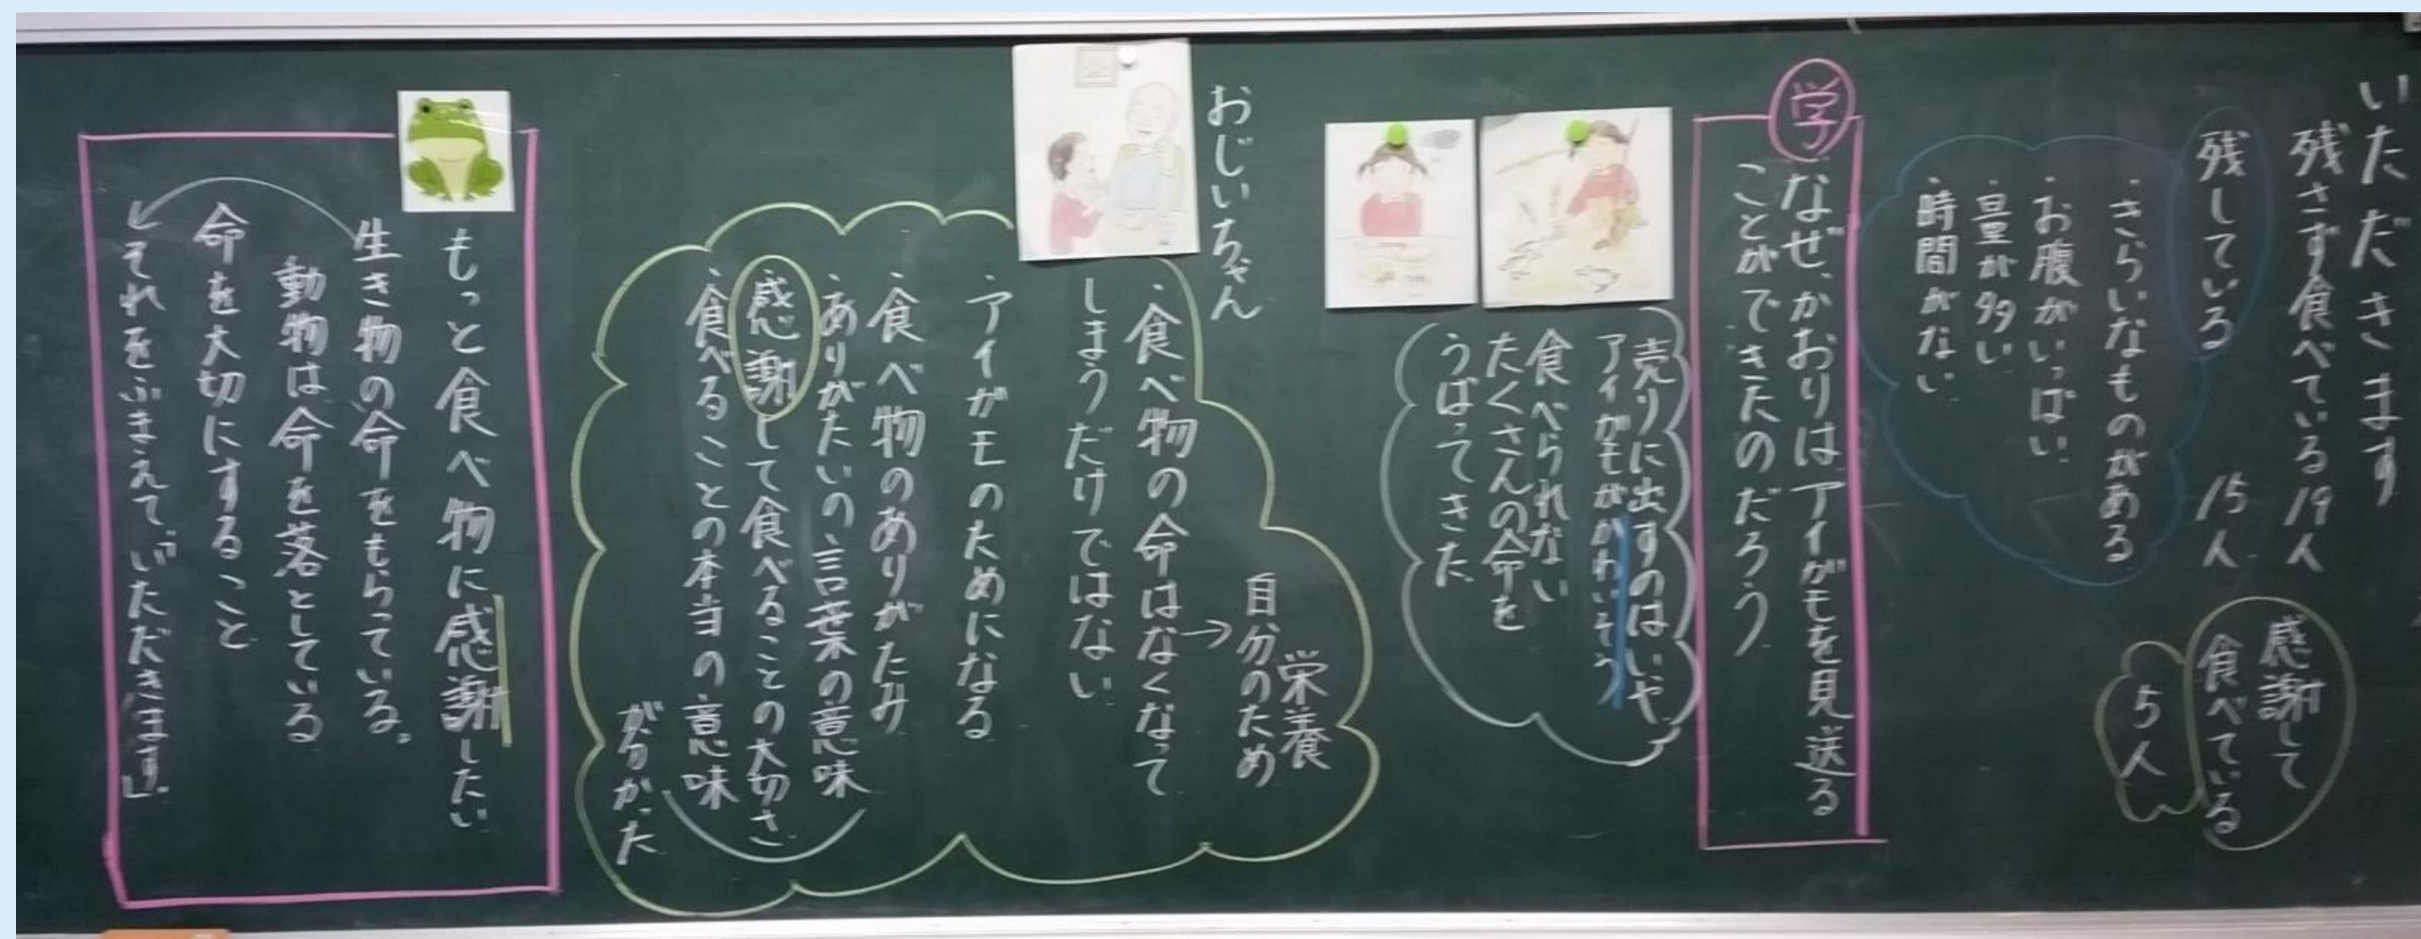 いただきます
残さず食べている19人
残している 15人
感謝して
食べている
5人
・きらいなものがある
・お腹がいっぱい
・量が多い
・時間がない
学
なぜ、かおりはアイガモを見送る
ことができたのだろう
売りに出すのはいや
アイガモがかわいそう
食べられない
たくさんの命を
うばってきた
おじいちゃん
栄養
→自分のため
・食べ物の命はなくなって
しまうだけではない
・アイガモのためになる
・食べ物のありがたみ
・ありがたいの言葉の意味
・感謝して食べることの大切さ
・食べることの本当の意味
が分かった
もっと食べ物に感謝したい
生き物の命をもらっている。
動物は命を落としている
命を大切にすること
それをふまえて「いただきます」